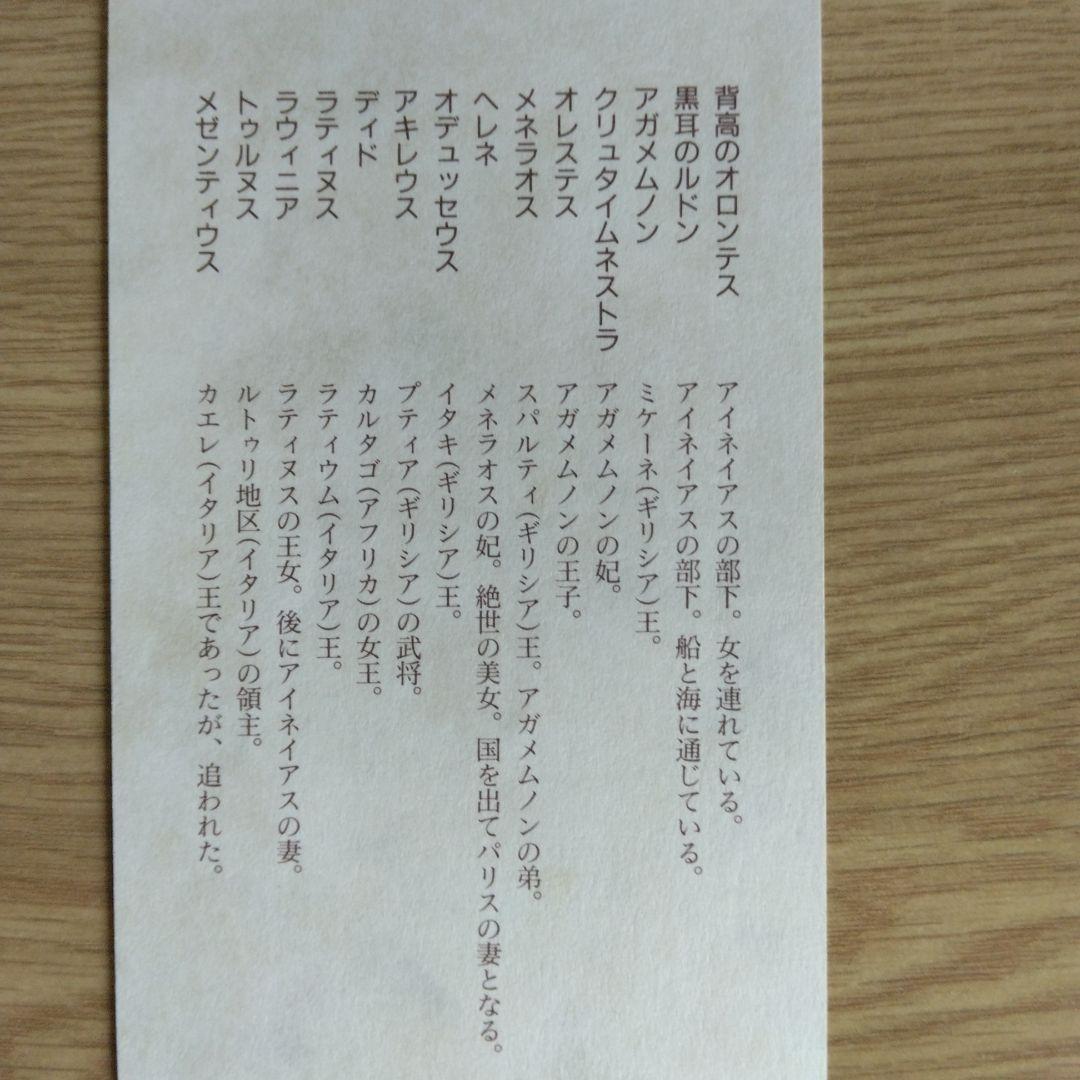 背高のオロンテス　アイネイアスの部下。女を連れている。
黒耳のルドン　アイネイアスの部下。船と海に通じている。
アガメムノン　ミケーネ(ギリシア)王。
クリュタイムネストラ　アガメムノンの妃。
オレステス　アガメムノンの王子。
メネラオス　スパルティ(ギリシア)王。アガメムノンの弟。
ヘレネ　メネラオスの妃。絶世の美女。国を出てパリスの妻となる。
オデュッセウス　イタキ(ギリシア)王。
アキレウス　プティア(ギリシア)の武将。
ディド　カルタゴ(アフリカ)の女王。
ラティヌス　ラティウム(イタリア)王。
ラウィニア　ラティヌスの王女。後にアイネイアスの妻。
トゥルヌス　ルトゥリ地区(イタリア)の領主。
メゼンティウス　カエレ(イタリア)王であったが、追われた。